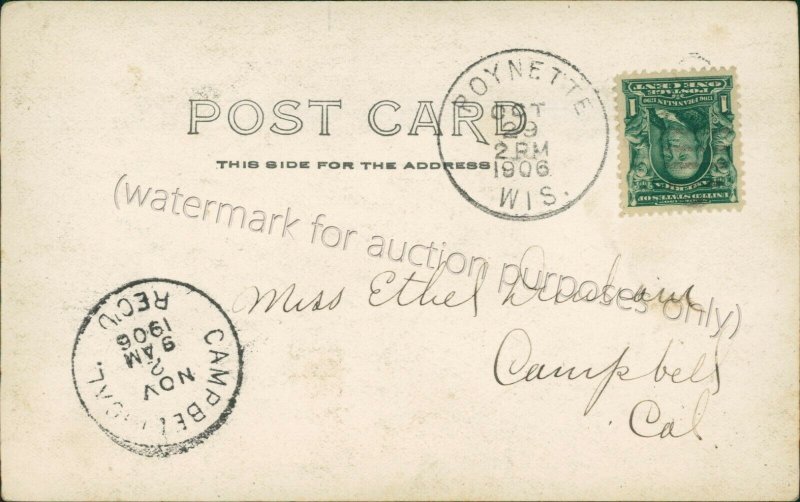 POST CARD
THIS SIDE FOR THE ADDRESS
POYNETTE
OCT
29
2 PM
1906
WIS.
POSTAGE
ONE CENT
1
1
FRANKLIN
UNITED STATES OF
AMERICA
(watermark for auction purposes only)
Miss Ethel
Campbell
Cal.
CAMPBELL, CAL.
NOV
2
9 AM
1906
REC'D